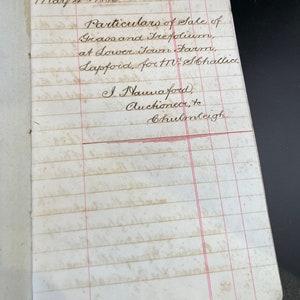 Particulars of Sale of
Grass and Trefolium,
at Lower Town Farm,
Lapford, for Mr. S Challice
J. Hannaford,
Auctioneer, &c
Chulmleigh